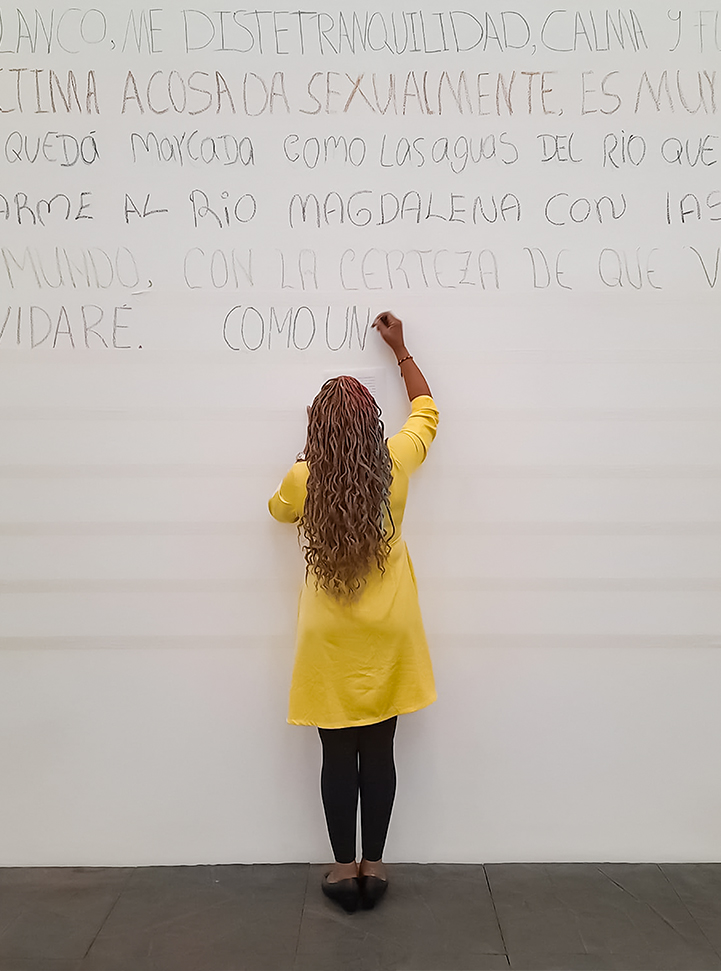 LANCO, ME DISTETRANQUILIDAD, CALMA Y F
CTIMA ACOSADA SEXUALMENTE, ES MUY
QUEDÁ MARCADA COMO LAS AGUAS DEL RIO QUE
ARME AL RIO MAGDALENA CON LAS
MUNDO, CON LA CERTEZA DE QUE V
VIDARÉ. COMO UN